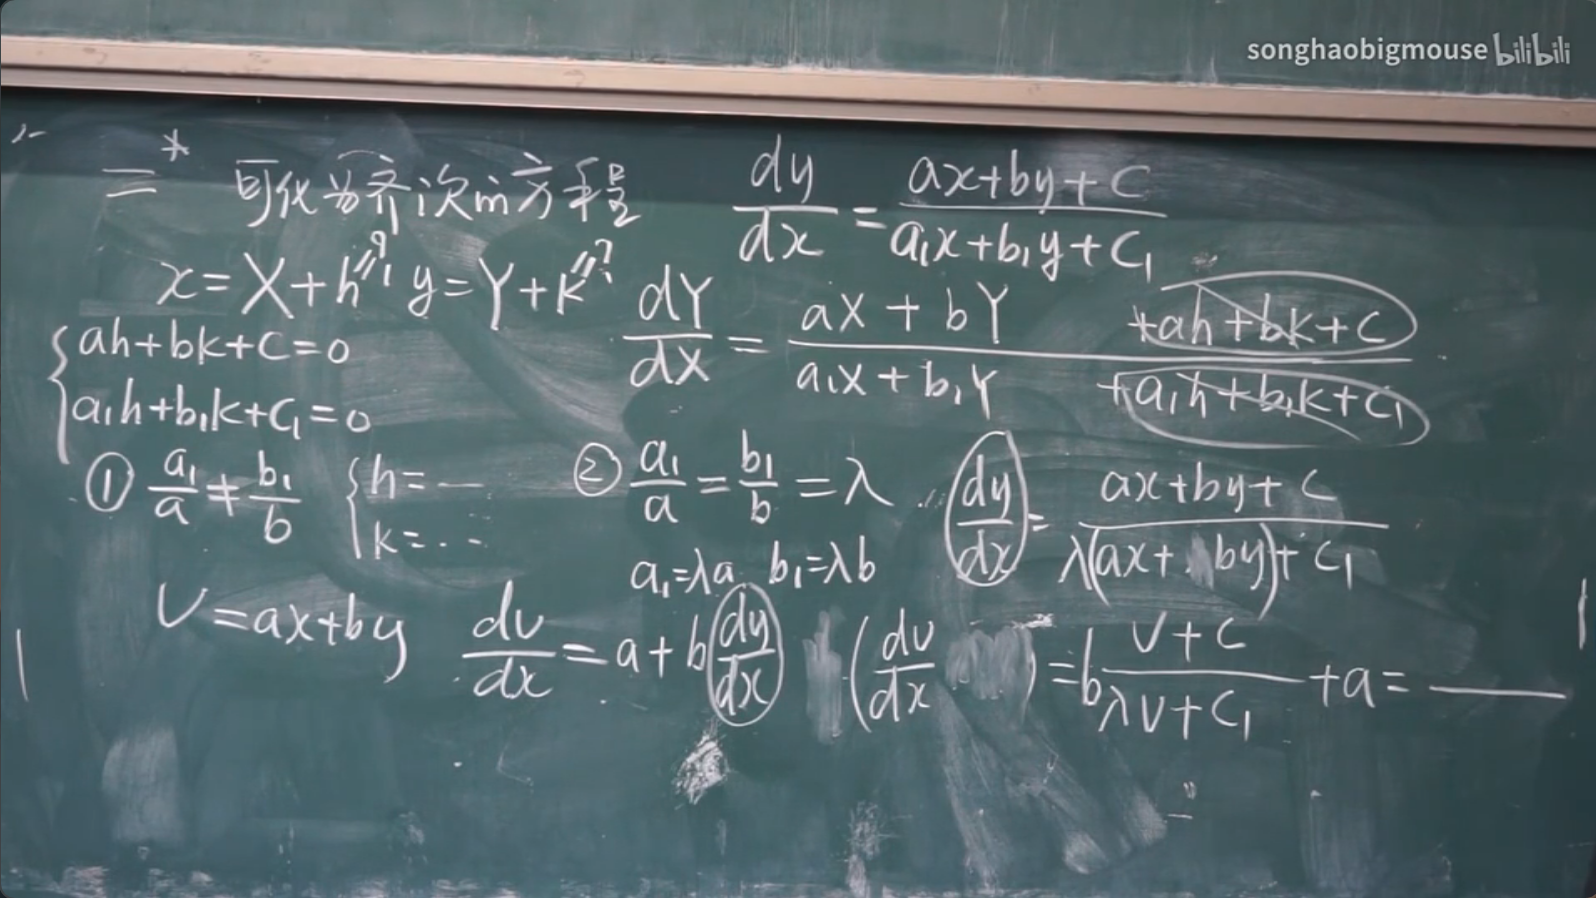 songhaobigmouse bilibili
二* 可化为齐次的方程 dy/dx = (ax+by+C)/(a₁x+b₁y+C₁)
x=X+h", y=Y+k" dY/dX = (aX+bY +ah+bk+C)/(a₁X+b₁Y +a₁h+b₁k+C₁)
{ah+bk+C=0
a₁h+b₁k+C₁=0
① a₁/a ≠ b₁/b {h=— k=... ② a₁/a = b₁/b = λ dy/dx = (ax+by+C)/(λ(ax+by)+C₁)
a₁=λa b₁=λb
v=ax+by dv/dx = a+b dy/dx (dv/dx ) = b (v+C)/(λv+C₁) +a = ——